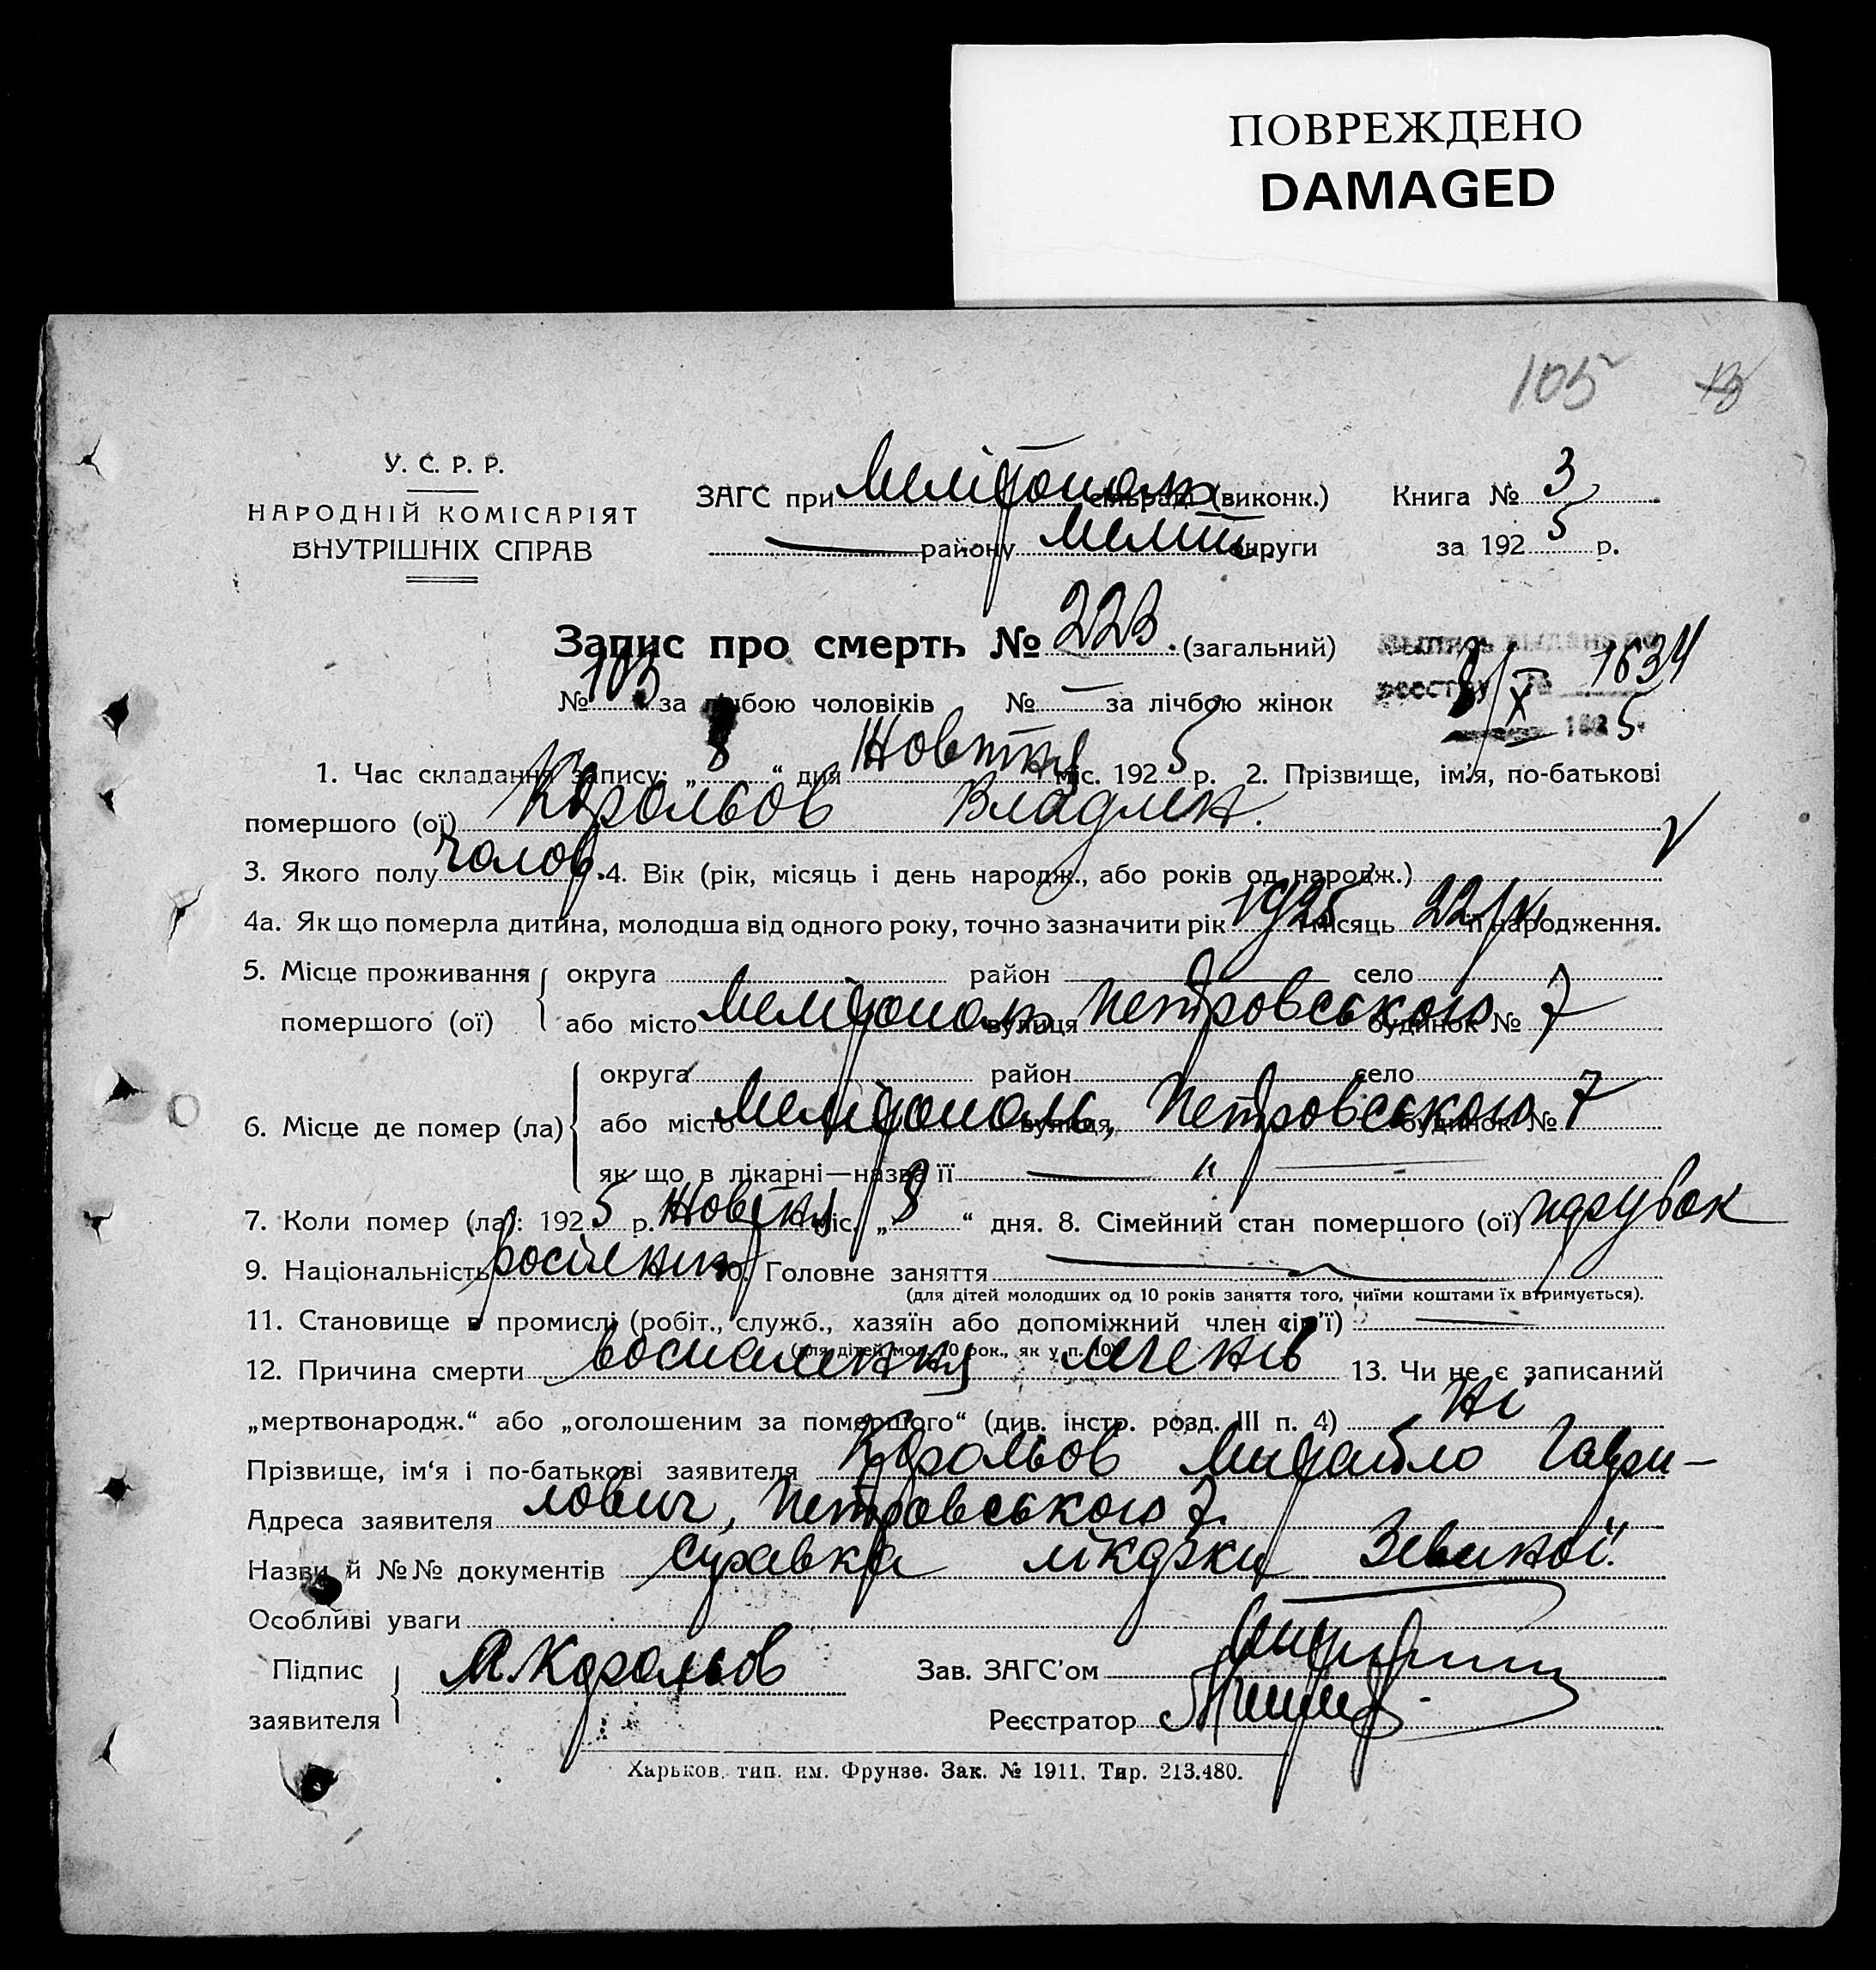 ПОВРЕЖДЕНО
DAMAGED
105
У. С. Р. Р.
НАРОДНІЙ КОМІСАРІЯТ
ВНУТРІШНІХ СПРАВ
ЗАГС при Мелітополь сільраді (виконк.) Книга № 3
— району Меліт. округи за 1925 р.
Запис про смерть № 223. (загальний)
№ 103 за лічбою чоловіків № — за лічбою жінок
1634
8/X 1925
1. Час складання запису: „8“ дня Жовтня міс. 1925 р. 2. Прізвище, ім'я, по-батькові
помершого (ої) Корольов Владлен.
3. Якого полу чолов. 4. Вік (рік, місяць і день народж., або років од народж.)
4а. Як що померла дитина, молодша від одного року, точно зазначити рік 1925 і місяць 22/ її народження.
5. Місце проживання помершого (ої) округа район — село
або місто Мелітополь вулиця Петровського будинок № 7
6. Місце де помер (ла) округа район село
або місто Мелітополь, вулиця Петровського будинок № 7
як що в лікарні—назва її — " —
7. Коли помер (ла): 1925 р. Жовтня міс. „8“ дня. 8. Сімейний стан помершого (ої) парубок
9. Національність росіянин 10. Головне заняття —
(для дітей молодших од 10 років заняття того, чиїми коштами їх втримується).
11. Становище в промислі (робіт., служб., хазяїн або допоміжний член сім'ї) —
(для дітей мол. 10 рок., як у п. 10)
12. Причина смерти воспалення легенів 13. Чи не є записаний
„мертвонародж.“ або „оголошеним за помершого“ (див. інстр. розд. III п. 4) Ні
Прізвище, ім'я і по-батькові заявителя Корольов Михайло Гаври-
Адреса заявителя лович, Петровського 7.
Назви й №№ документів справка лікарки Зевиної.
Особливі уваги
Підпис заявителя М. Корольов Зав. ЗАГС'ом
Реєстратор
Харьков. тип. им. Фрунзе. Зак. № 1911. Тир. 213.480.